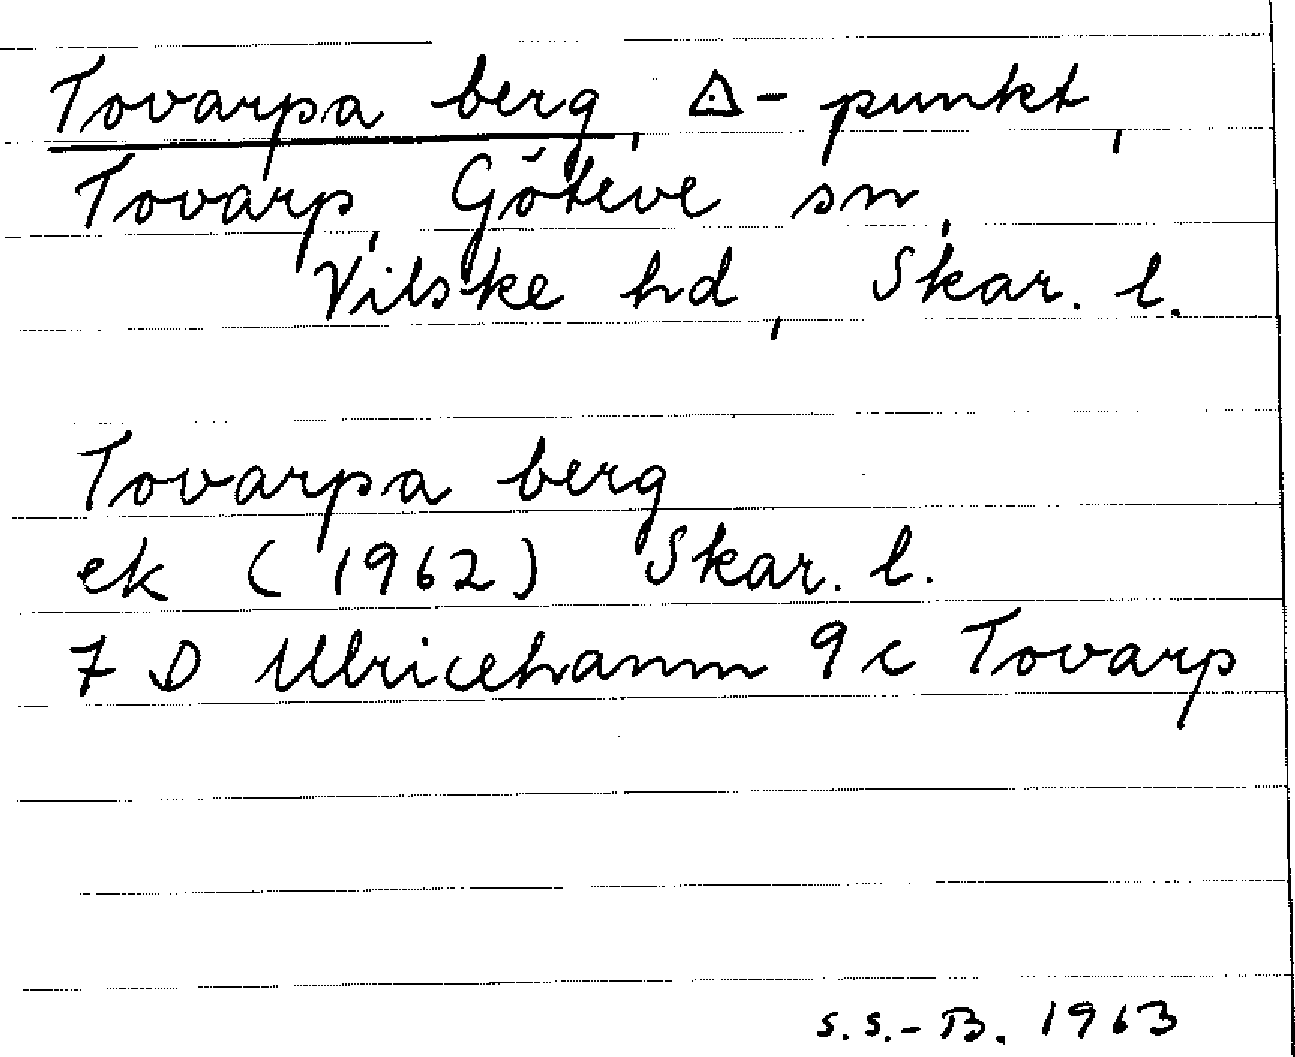 Tovarpa berg, ◬-punkt,
Tovarp, Göteve sn,
Vilske hd, Skar. l.
Tovarpa berg
ek (1962) Skar. l.
7 D Ulricehamn 9 c Tovarp
S.S.-B. 1963